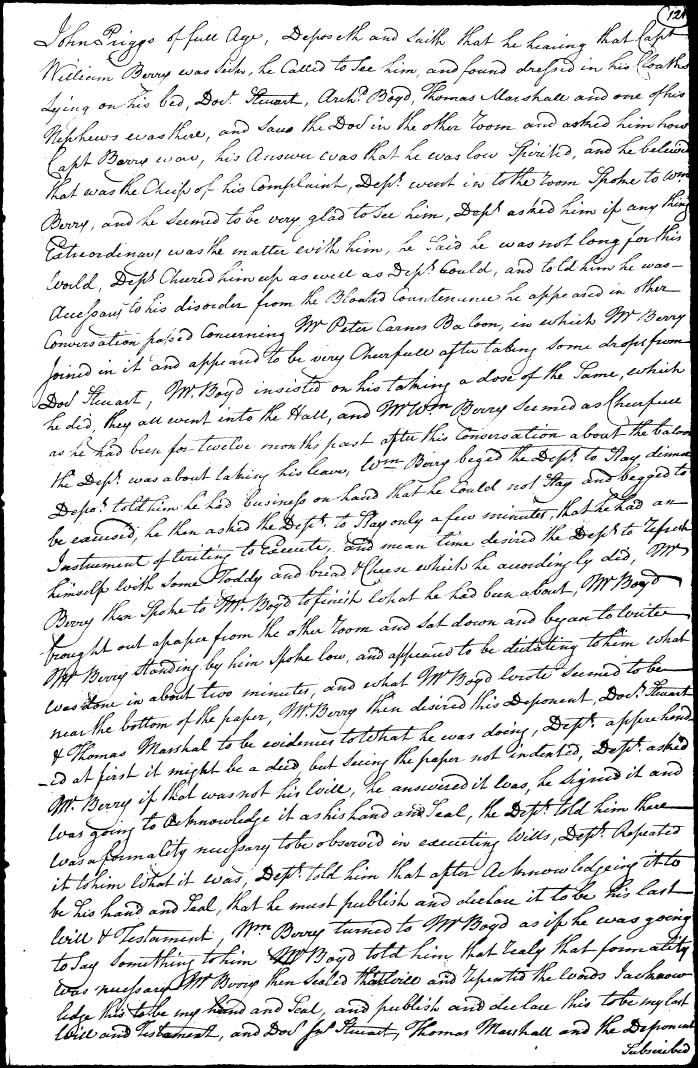 124
John Priggs of full Age, Deposeth and Saith that he hearing that Capt
William Berry was Sick, he Called to See him, and found dressed in his Cloaths
Lying on his bed, Docr. Steuart, Archd. Boyd, Thomas Marshall and one of his
Nephews was there, and Saw the Docr in the other Room and asked him how
Capt Berry was, his Answer was that he was low Spirited, and he beleived
that was the Cheif of his Complaint, Dept. went in to the Room Spoke to Wm
Berry, and he Seemed to be very glad to See him, Dept. asked him if any thing
Extraordinary was the matter with him, he Said he was not long for this
World, Dept. Cheered him up as well as Dept. Could, and told him he was
Accessary to his disorder from the Bloated Countenance he appeared in other
Conversation passed Concerning Mr Peter Carnes Baloon, in which Mr Berry
Joined in it and appeared to be very Chearfull after taking Some drops from
Docr Steuart, Mr. Boyd insisted on his taking a dose of the Same, which
he did, they all went into the Hall, and Mr Wm Berry Seemed as Chearfull
as he had been for twelve months past after this Conversation about the baloon
the Dept. was about taking his leave, Wm Berry beged the Dept. to Stay dinner
Depot. told him he had business on hand that he Could not Stay and begged to
be excused, he then asked the Dept. to Stay only a few minutes, that he had an
Instrument of writing to Execute, and mean time desired the Dept. to refresh
himself with Some Toddy and bread & Cheese which he accordingly did, Mr
Berry then Spoke to Mr. Boyd to finish what he had been about, Mr Boyd
brought out a paper from the other Room and Sat down and began to write
Mr Berry Standing by him Spoke low, and appeared to be dictating to him what
was done in about two minutes, and what Mr Boyd wrote Seemed to be
near the bottom of the paper, Mr. Berry then desired this Deponent, Docr. Steuart
& Thomas Marshal to be evidences to what he was doing, Dept. apprehend
-ed at first it might be a deed but Seeing the paper not indented, Dept. asked
Mr. Berry if that was not his Will, he answered it was, he Signed it and
was going to Acknowledge it as his hand and Seal, the Dept. told him there
was a formality necessary to be observed in executing Wills, Dept. Repeated
it to him what it was, Dept. told him that after Acknowledgeing it to
be his hand and Seal, that he must publish and declare it to be his last
Will & Testament, Wm Berry turned to Mr Boyd as if he was going
to Say Something to him Mr Boyd told him that realy that formality
was necessary Mr Berry then Sealed the Will and repeated the words I acknow
ledge this to be my hand and Seal, and publish and declare this to be my last
Will and Testament, and Docr Jas Steuart, Thomas Marshall and the Deponent
Subscribed